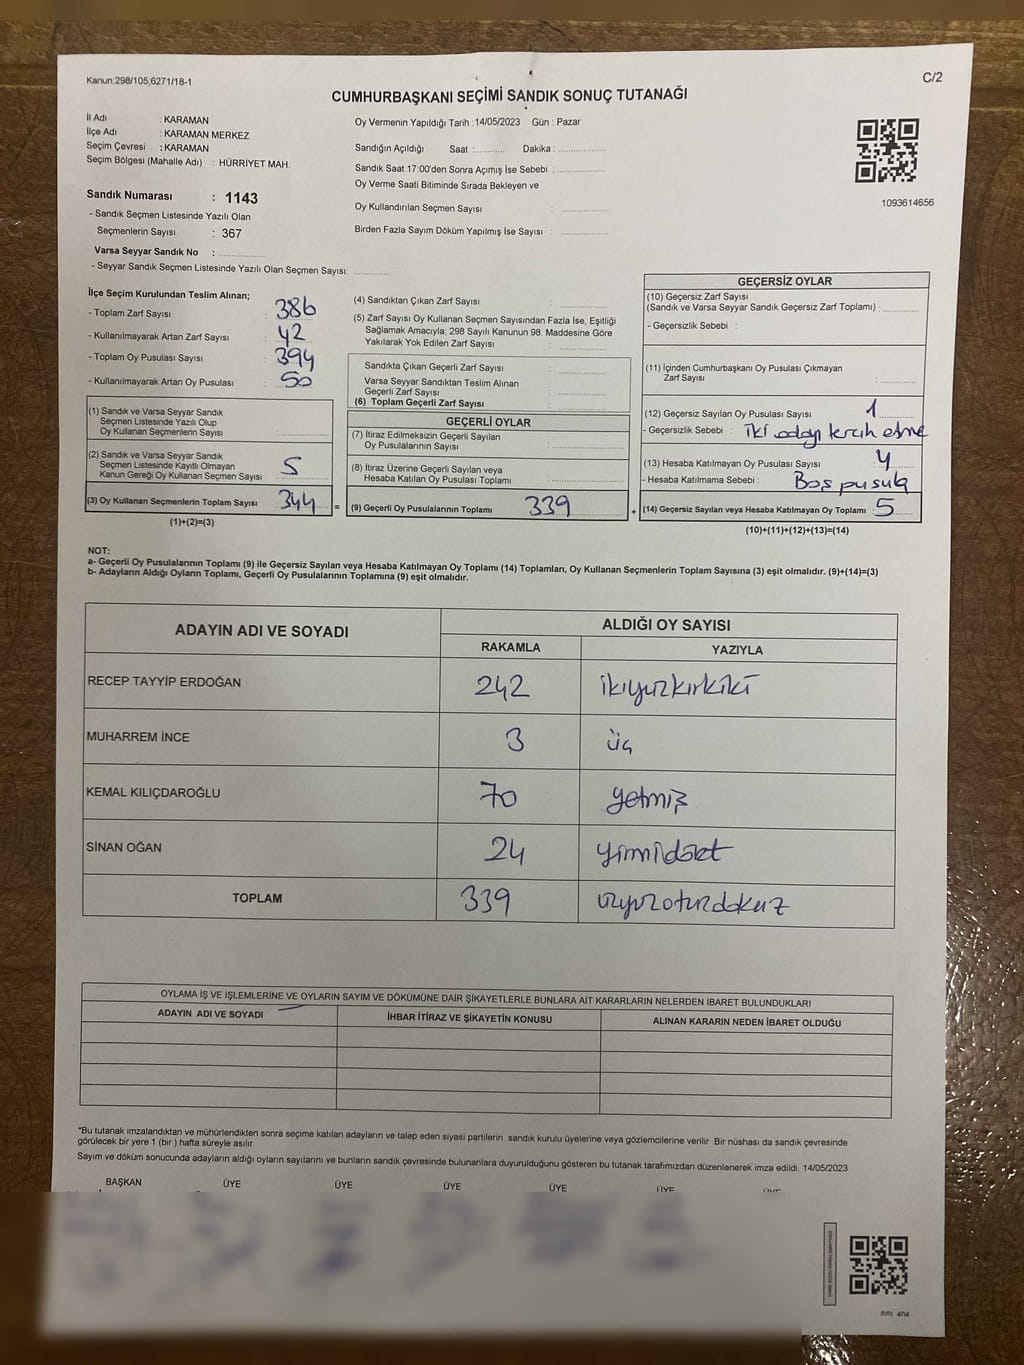 Kanun;298/105,6271/18-1
C/2
CUMHURBAŞKANI SEÇİMİ SANDIK SONUÇ TUTANAĞI
İl Adı : KARAMAN
İlçe Adı : KARAMAN MERKEZ
Seçim Çevresi : KARAMAN
Seçim Bölgesi (Mahalle Adı) : HÜRRİYET MAH.
Sandık Numarası : 1143
- Sandık Seçmen Listesinde Yazılı Olan
Seçmenlerin Sayısı : 367
Varsa Seyyar Sandık No :
- Seyyar Sandık Seçmen Listesinde Yazılı Olan Seçmen Sayısı:
Oy Vermenin Yapıldığı Tarih :14/05/2023 Gün : Pazar
Sandığın Açıldığı Saat : Dakika :
Sandık Saat 17:00'den Sonra Açımış İse Sebebi :
Oy Verme Saati Bitiminde Sırada Bekleyen ve
Oy Kullandırılan Seçmen Sayısı :
Birden Fazla Sayım Döküm Yapılmış İse Sayısı :
1093614656
İlçe Seçim Kurulundan Teslim Alınan;
- Toplam Zarf Sayısı : 386
- Kullanılmayarak Artan Zarf Sayısı : 42
- Toplam Oy Pusulası Sayısı : 394
- Kullanılmayarak Artan Oy Pusulası : 50
(1) Sandık ve Varsa Seyyar Sandık
Seçmen Listesinde Yazılı Olup
Oy Kullanan Seçmenlerin Sayısı :
(2) Sandık ve Varsa Seyyar Sandık
Seçmen Listesinde Kayıtlı Olmayan
Kanun Gereği Oy Kullanan Seçmen Sayısı : 5
(3) Oy Kullanan Seçmenlerin Toplam Sayısı : 344
(1)+(2)=(3)
=
(4) Sandıktan Çıkan Zarf Sayısı :
(5) Zarf Sayısı Oy Kullanan Seçmen Sayısından Fazla İse, Eşitliği
Sağlamak Amacıyla, 298 Sayılı Kanunun 98. Maddesine Göre
Yakılarak Yok Edilen Zarf Sayısı :
Sandıkta Çıkan Geçerli Zarf Sayısı :
Varsa Seyyar Sandıktan Teslim Alınan
Geçerli Zarf Sayısı :
(6) Toplam Geçerli Zarf Sayısı :
GEÇERLİ OYLAR
(7) İtiraz Edilmeksizin Geçerli Sayılan
Oy Pusulalarının Sayısı :
(8) İtiraz Üzerine Geçerli Sayılan veya
Hesaba Katılan Oy Pusulası Toplamı :
(9) Geçerli Oy Pusulalarının Toplamı : 339
+
GEÇERSİZ OYLAR
(10) Geçersiz Zarf Sayısı
(Sandık ve Varsa Seyyar Sandık Geçersiz Zarf Toplamı) :
- Geçersizlik Sebebi :
(11) İçinden Cumhurbaşkanı Oy Pusulası Çıkmayan
Zarf Sayısı :
(12) Geçersiz Sayılan Oy Pusulası Sayısı : 1
- Geçersizlik Sebebi : iki adayı tercih etme
(13) Hesaba Katılmayan Oy Pusulası Sayısı : 4
- Hesaba Katılmama Sebebi : Boş pusula
(14) Geçersiz Sayılan veya Hesaba Katılmayan Oy Toplamı : 5
(10)+(11)+(12)+(13)=(14)
NOT:
a- Geçerli Oy Pusulalarının Toplamı (9) ile Geçersiz Sayılan veya Hesaba Katılmayan Oy Toplamı (14) Toplamları, Oy Kullanan Seçmenlerin Toplam Sayısına (3) eşit olmalıdır. (9)+(14)=(3)
b- Adayların Aldığı Oyların Toplamı, Geçerli Oy Pusulalarının Toplamına (9) eşit olmalıdır.
ADAYIN ADI VE SOYADI
ALDIĞI OY SAYISI
RAKAMLA YAZIYLA
RECEP TAYYİP ERDOĞAN 242 ikiyüzkırkiki
MUHARREM İNCE 3 üç
KEMAL KILIÇDAROĞLU 70 yetmiş
SİNAN OĞAN 24 yirmidört
TOPLAM 339 üçyüzotuzdokuz
OYLAMA İŞ VE İŞLEMLERİNE VE OYLARIN SAYIM VE DÖKÜMÜNE DAİR ŞİKAYETLERLE BUNLARA AİT KARARLARIN NELERDEN İBARET BULUNDUKLARI
ADAYIN ADI VE SOYADI İHBAR İTİRAZ VE ŞİKAYETİN KONUSU ALINAN KARARIN NEDEN İBARET OLDUĞU
*Bu tutanak imzalandıktan ve mühürlendikten sonra seçime katılan adayların ve talep eden siyasi partilerin sandık kurulu üyelerine veya gözlemcilerine verilir .Bir nüshası da sandık çevresinde
görülecek bir yere 1 (bir ) hafta süreyle asılır.
Sayım ve döküm sonucunda adayların aldığı oyların sayılarını ve bunların sandık çevresinde bulunanlara duyurulduğunu gösteren bu tutanak tarafımızdan düzenlenerek imza edildi. 14/05/2023
BAŞKAN ÜYE ÜYE ÜYE ÜYE ÜYE ÜYE